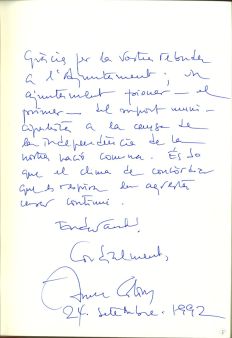 Gràcies per la vostra rebuda
a l'Ajuntament; un
ajuntament pioner — el
primer — del suport muni-
cipalista a la causa de
la independència de la
nostra nació comuna. És bo
que el clima de concòrdia
que es respira en aquesta
continuï.
Endavant!
Cordialment,
24. setembre. 1992